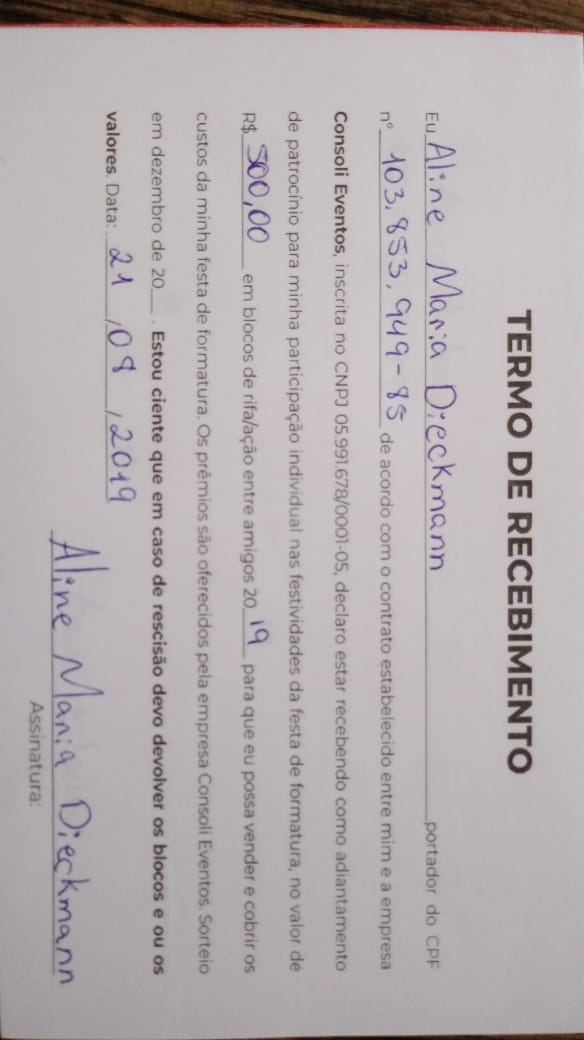 TERMO DE RECEBIMENTO
Eu Aline Maria Dieckmann portador do CPF
nº 103.853.949-85 de acordo com o contrato estabelecido entre mim e a empresa
Consoli Eventos, inscrita no CNPJ 05.991.678/0001-05, declaro estar recebendo como adiantamento
de patrocínio para minha participação individual nas festividades da festa de formatura, no valor de
R$ 500,00 em blocos de rifa/ação entre amigos 20 19 para que eu possa vender e cobrir os
custos da minha festa de formatura. Os prêmios são oferecidos pela empresa Consoli Eventos. Sorteio
em dezembro de 20___. Estou ciente que em caso de rescisão devo devolver os blocos e ou os
valores. Data: 21 / 08 / 2019
Aline Maria Dieckmann
Assinatura: